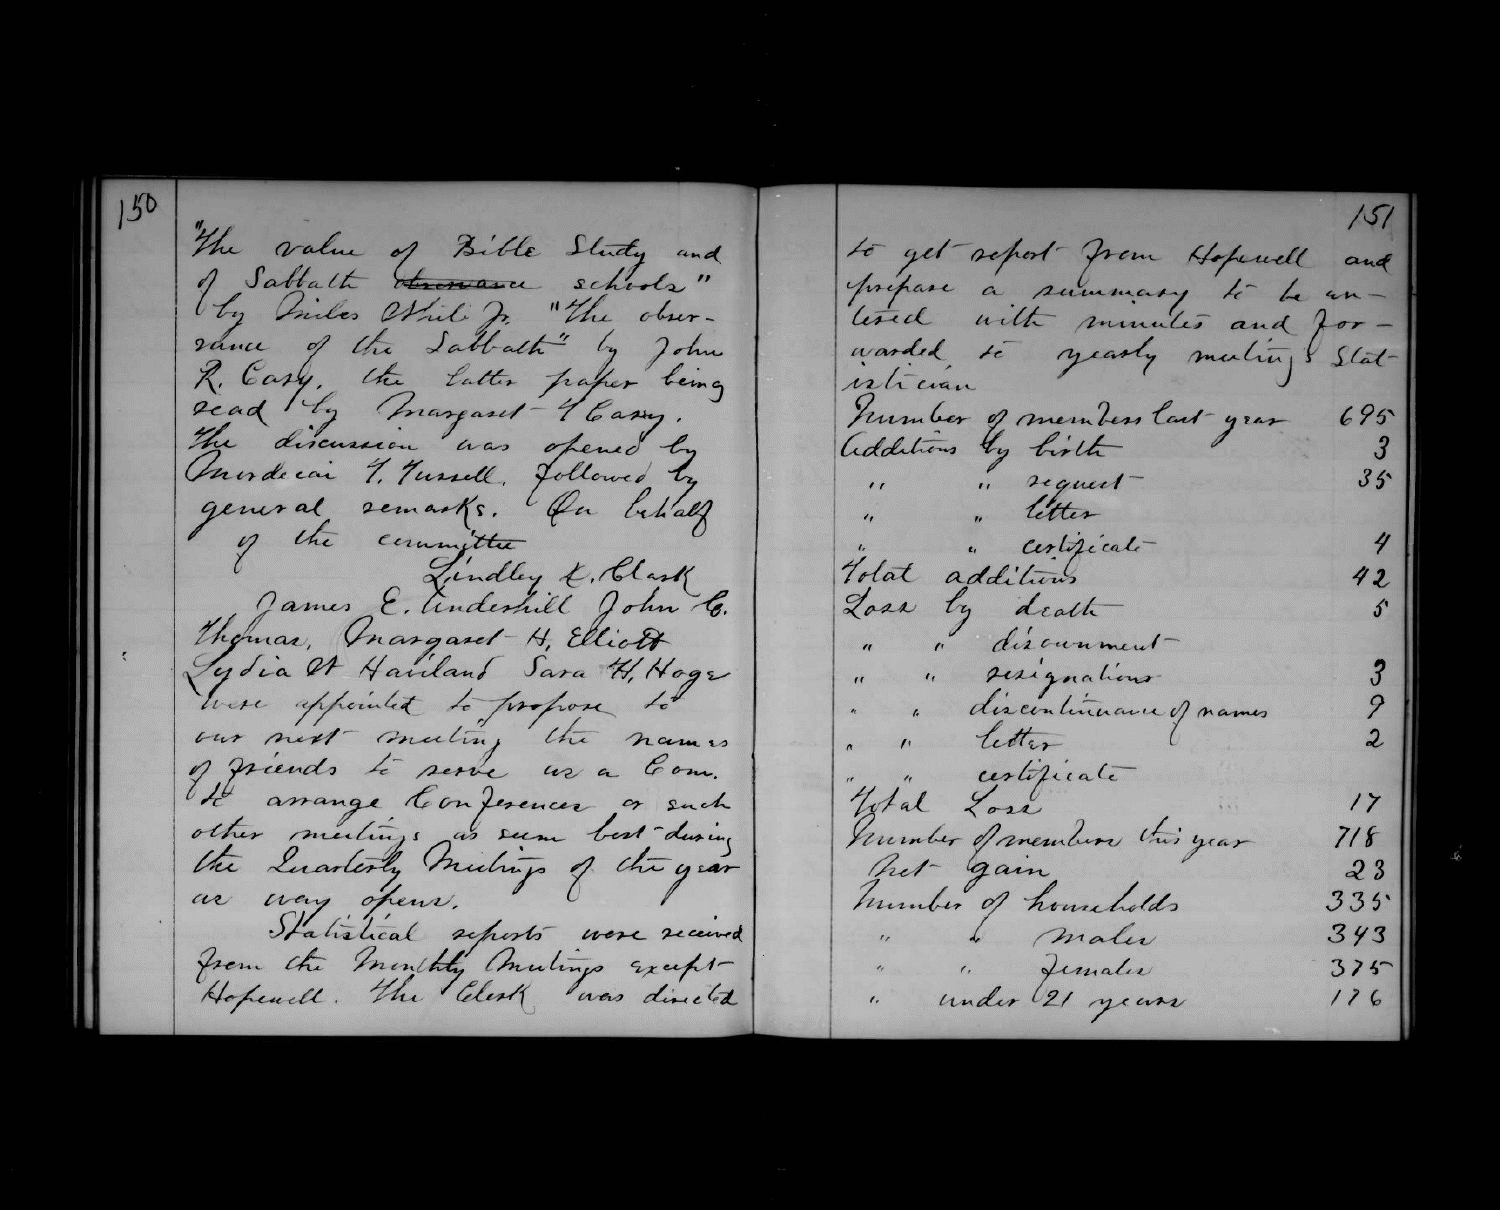 150
"The value of Bible Study and
of Sabbath observance schools"
by Miles White Jr. "The obser-
vance of the Sabbath" by John
R. Cary, the latter paper being
read by Margaret T Cary.
The discussion was opened by
Mordecai T. Fussell, followed by
general remarks. On behalf
of the committee
Lindley D. Clark
James E. Underhill John C.
Thomas, Margaret H, Elliott
Lydia W Haviland Sara H, Hoge
were appointed to propose to
our next meeting the names
of friends to serve as a Com.
to arrange Conferences or such
other meetings as seem best during
the Quarterly Meetings of the year
as way opens.
Statistical reports were received
from the Monthly Meetings except
Hopewell. The Clerk was directed
151
to get report from Hopewell and
prepare a summary to be en-
tered with minutes and for-
warded to yearly meetings Stat-
istician
Number of members last year 695
Additions by birth 3
" " request 35
" " letter
" " certificate 4
Total additions 42
Loss by death 5
" " disownment
" " resignations 3
" " discontinuance of names 9
" " letter 2
" " certificate
Total Loss 17
Number of members this year 718
Net gain 23
Number of households 335
" " males 343
" " females 375
" under 21 years 176